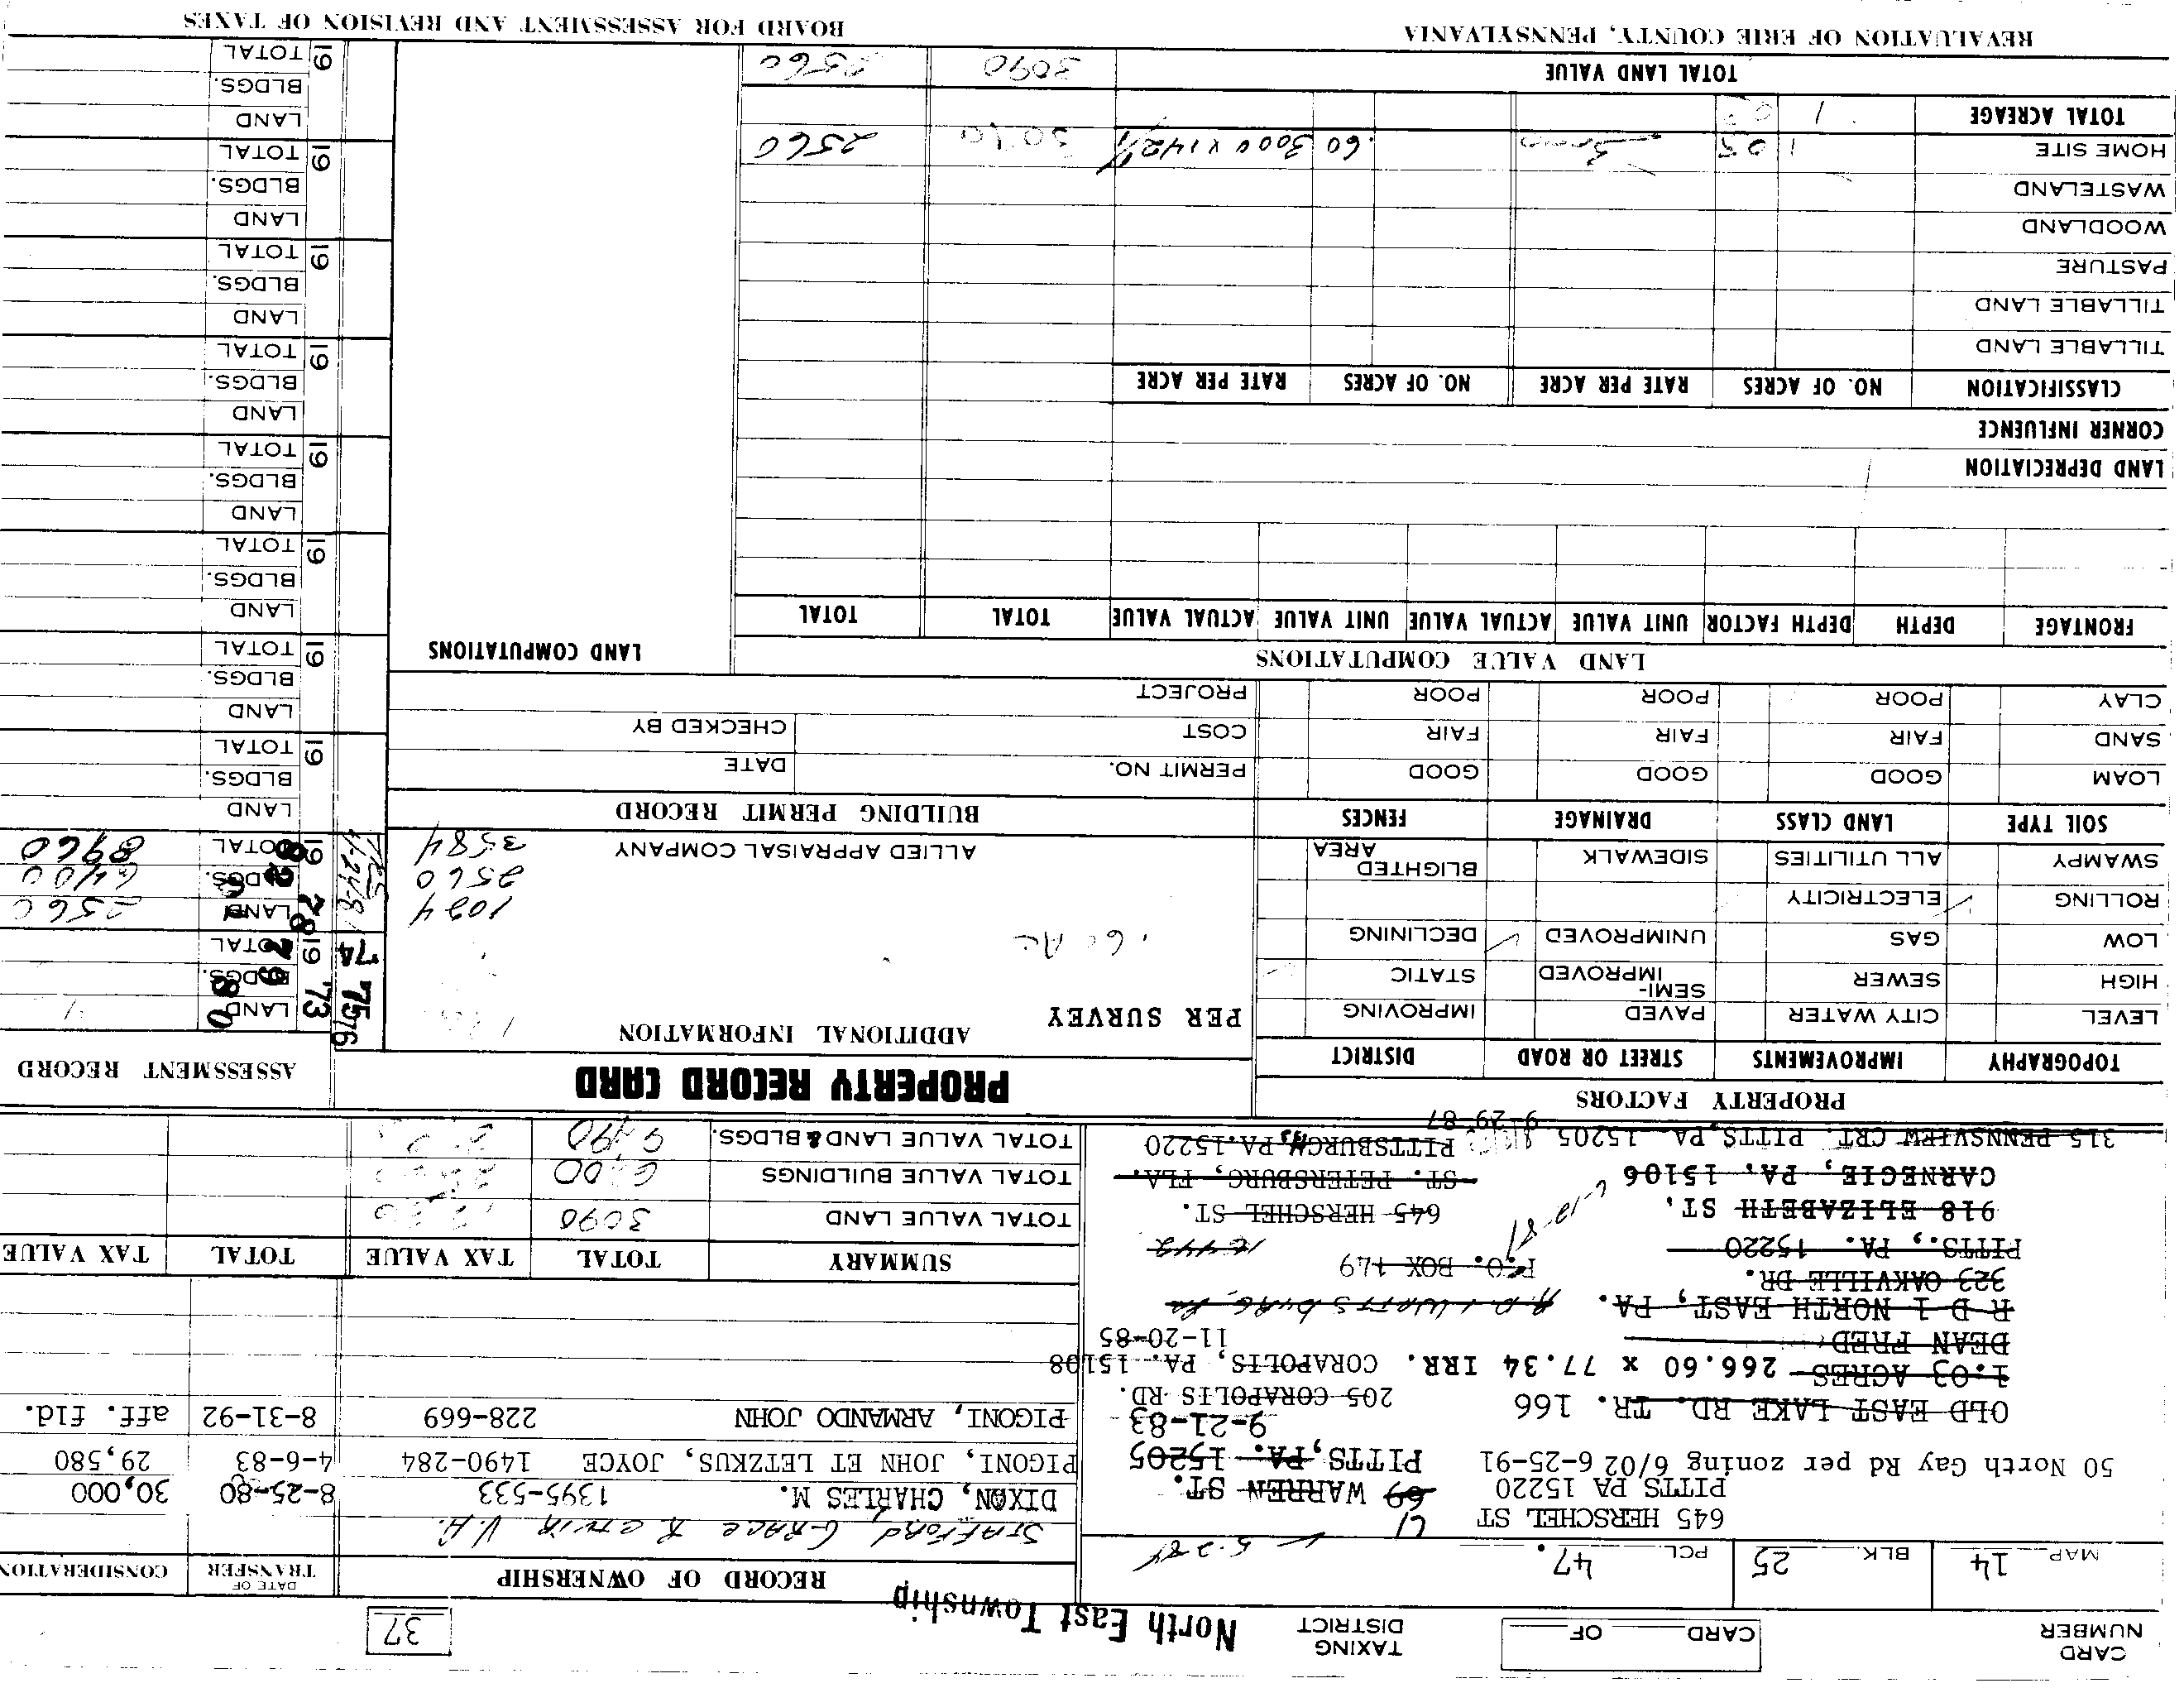 CARD NUMBER
CARD OF
TAXING DISTRICT North East Township
37
MAP 14 BLK. 25 PCL. 47.
5-2-84
645 HERSCHEL ST
PITTS PA 15220
50 North Gay Rd per zoning 6/02 6-25-91
69 WARREN ST.
PITTS, PA. 15205
9-21-83
OLD EAST LAKE RD. TR. 166
205 CORAPOLIS RD.
1.03 ACRES 266.60 x 77.34 IRR. CORAPOLIS, PA. 15108
DEAN FRED
11-20-85
R D 1 NORTH EAST, PA. R.D. 1 WATTSBURG, Pa
323 OAKVILLE DR.
P.O. BOX 149
16442
PITTS., PA. 15220
918 ELIZABETH ST.
645 HERSCHEL ST.
CARNEGIE, PA. 15106
ST. PETERSBURG, FLA.
315 PENNSVIEW CRT. PITTS, PA 15205
PITTSBURGH PA. 15220
9-29-87
RECORD OF OWNERSHIP
DATE OF TRANSFER
CONSIDERATION
STAFFORD GRACE
DIXON, CHARLES M. 1395-533 8-25-80 30,000
PIGONI, JOHN ET LETZKUS, JOYCE 1490-284 4-6-83 29,580
PIGONI, ARMANDO JOHN 228-669 8-31-92 aff. fid.
SUMMARY TOTAL TAX VALUE TOTAL TAX VALUE
TOTAL VALUE LAND 3090
TOTAL VALUE BUILDINGS
TOTAL VALUE LAND & BLDGS.
PROPERTY FACTORS
TOPOGRAPHY IMPROVEMENTS STREET OR ROAD DISTRICT
LEVEL CITY WATER PAVED IMPROVING
HIGH SEWER SEMI-IMPROVED STATIC
LOW GAS UNIMPROVED DECLINING
ROLLING ELECTRICITY
SWAMPY ALL UTILITIES SIDEWALK BLIGHTED AREA
SOIL TYPE LAND CLASS DRAINAGE FENCES
LOAM GOOD GOOD GOOD
SAND FAIR FAIR FAIR
CLAY POOR POOR POOR
PROPERTY RECORD CARD
ADDITIONAL INFORMATION
PER SURVEY
.60 Ac
1024
2560
3584
ALLIED APPRAISAL COMPANY
BUILDING PERMIT RECORD
PERMIT NO. DATE
COST CHECKED BY
PROJECT
ASSESSMENT RECORD
'73 '74 '75 76
78 79 80
82
19 LAND
BLDGS.
TOTAL
19 LAND 2560
BLDGS. 6400
TOTAL 8960
19 LAND
BLDGS.
TOTAL
19 LAND
BLDGS.
TOTAL
19 LAND
BLDGS.
TOTAL
19 LAND
BLDGS.
TOTAL
19 LAND
BLDGS.
TOTAL
19 LAND
BLDGS.
TOTAL
19 LAND
BLDGS.
TOTAL
19 LAND
BLDGS.
TOTAL
LAND VALUE COMPUTATIONS
LAND COMPUTATIONS
FRONTAGE DEPTH DEPTH FACTOR UNIT VALUE ACTUAL VALUE UNIT VALUE ACTUAL VALUE TOTAL TOTAL
LAND DEPRECIATION
CORNER INFLUENCE
CLASSIFICATION NO. OF ACRES RATE PER ACRE NO. OF ACRES RATE PER ACRE
TILLABLE LAND
TILLABLE LAND
PASTURE
WOODLAND
WASTELAND
HOME SITE 1 03 .60 3000 x 142% 2560
TOTAL ACREAGE 1
TOTAL LAND VALUE 3090 2560
REVALUATION OF ERIE COUNTY, PENNSYLVANIA
BOARD FOR ASSESSMENT AND REVISION OF TAXES